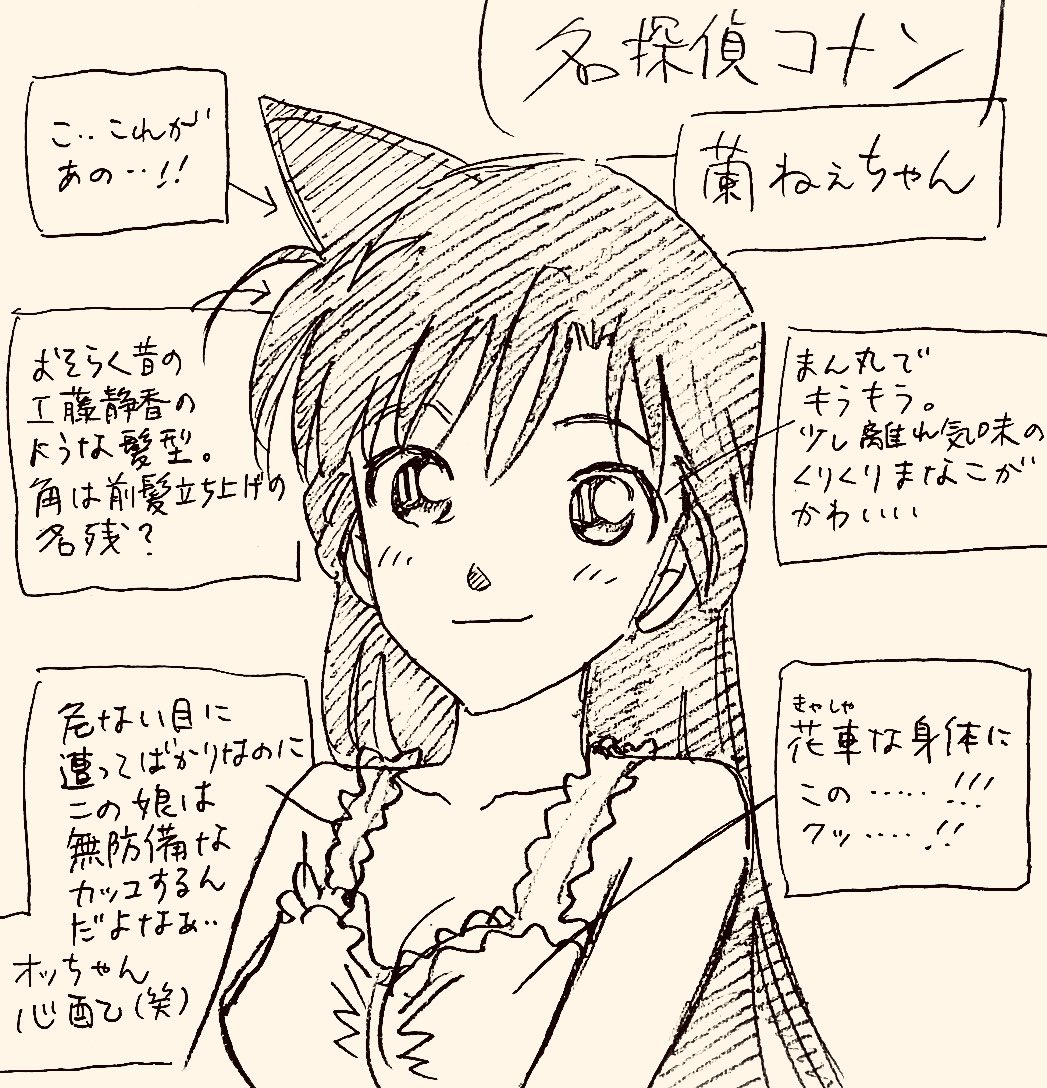 名探偵コナン
蘭ねぇちゃん
こ‥これが
あの‥!!
おそらく昔の
工藤静香の
ような髪型。
角は前髪立ち上げの
名残?
まん丸で
もうもう。
少し離れ気味の
くりくりまなこが
かわいいい
危ない目に
遭ってばかりなのに
この娘は
無防備な
カッコするん
だよなぁ‥
オッちゃん
心配(笑)
きゃしゃ
花車な身体に
この‥‥‥!!!
クッ‥‥‥!!